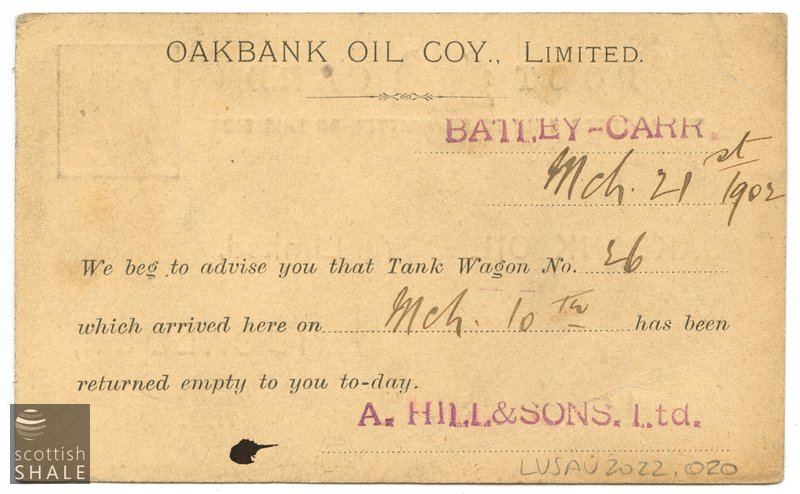 OAKBANK OIL COY., LIMITED.
BATLEY-CARR.
Mch. 21st 1902
We beg to advise you that Tank Wagon No. 26
which arrived here on Mch. 10th has been
returned empty to you to-day.
A. HILL & SONS. Ltd.
LVSAV2022.020
scottish
SHALE